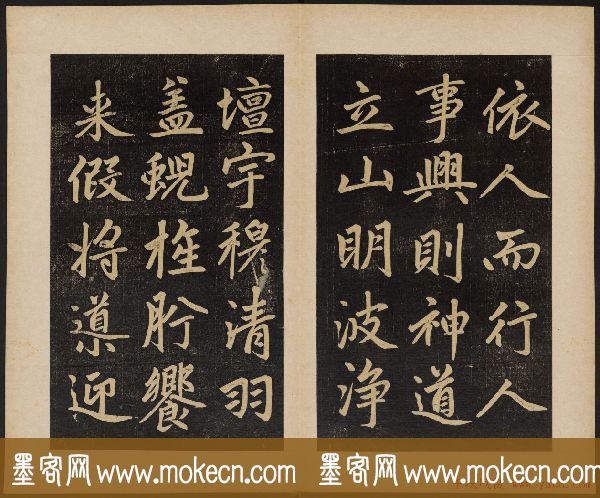 依人而行人
事興則神道
立山明波净
壇宇穆清羽
盖蜺旌肸饗
来假将導迎
墨客网 www.mokecn.com 墨客网 www.mokecn.com